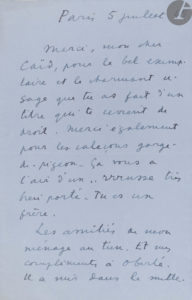 Paris 5 juillet
Merci, mon cher
Caïd, pour le bel exem-
plaire et le charmant u-
sage que tu as fait d'un
titre qui te revient de
droit. Merci également
pour les caleçons gorge-
de-pigeon. Ça vous a
l'air d'un
très
bien porté. Tu es un
frère.
Les amitiés de mon
ménage au tien. Et mes
compliments à Oberlé.
Il a mis dans le mille.